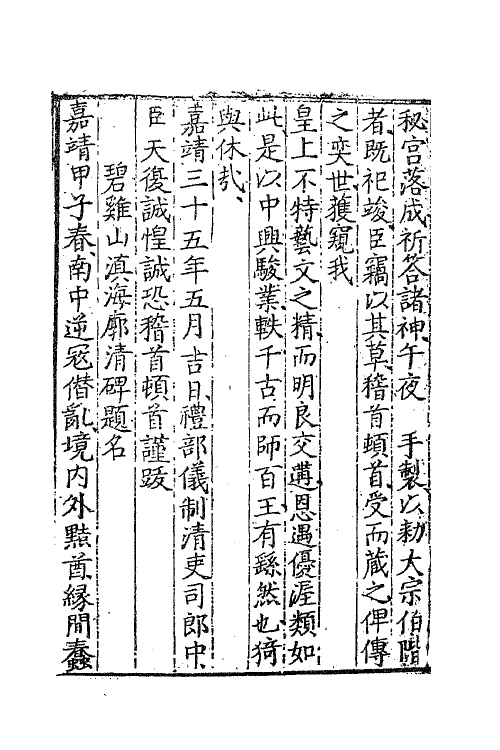 秘宫落成祈答諸神午夜　手製以勑大宗伯階
者既祀竣臣竊以其草稽首頓首受而藏之俾傳
之奕世獲窺我
皇上不特藝文之精而明良交遘恩遇優渥類如
此是以中興駿業軼千古而師百王有繇然也猗
與休㢤
嘉靖三十五年五月吉日禮部儀制清吏司郎中
臣天復誠惶誠恐稽首頓首謹跋
碧雞山滇海廓清碑題名
嘉靖甲子春南中逆冦僣亂境内外黠酋縁間蠢